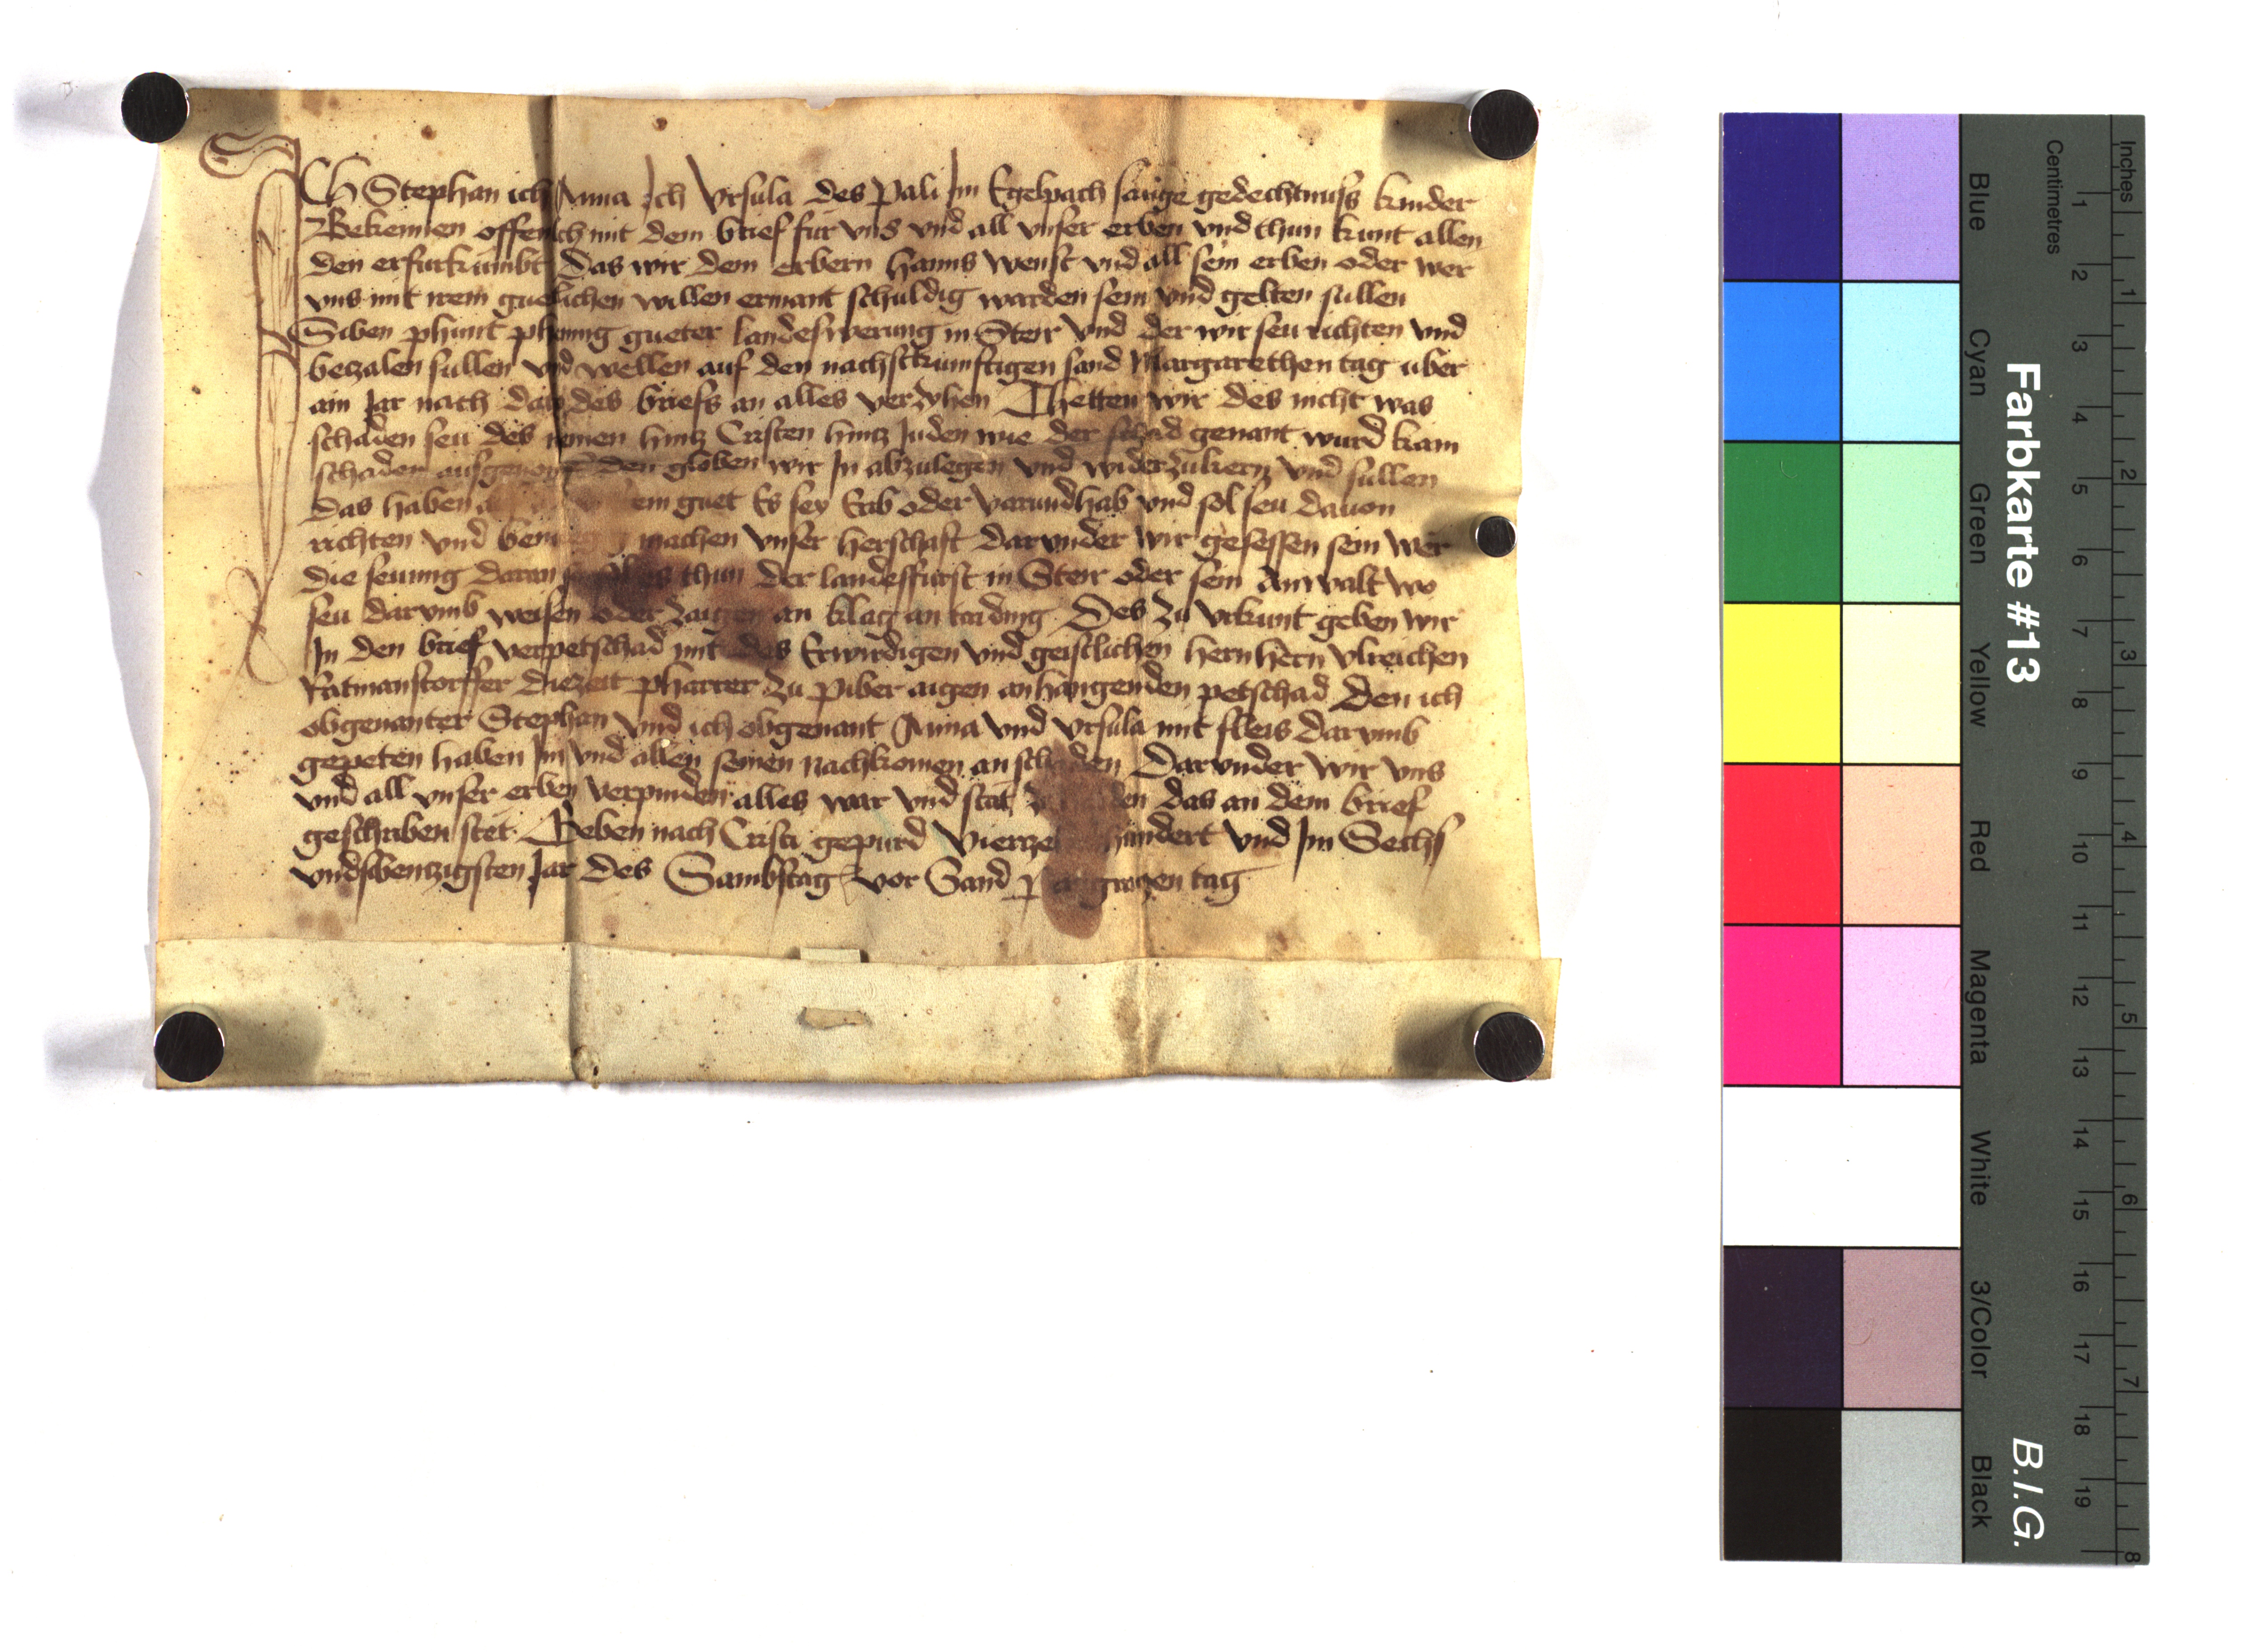 ICH Stephan ich Anna Ich Vrsula des Pali Im Egelpach sailige gedechtnuss kinder
Bekennen offenlich mit dem brief fur vns vnd all vnser erben vnd thun kunt allen
den er furkumbt Das wir dem erbern Hanns Wenst vnd all sein erben oder wer
vns mit irem guetlichen willen ermant schuldig warden sein vnd gelten sullen
Siben phunt phening gueter landeswerung in Steir Vnd der wir seu richten vnd
bezalen sullen vnd wellen auf den nachstkunftigen sand Margarethen tag uber
ain Jar nach des briefs an alles verzyhen Thetten wir des nicht was
schaden seu des nemen hintz Cristen hintz Juden wie der schad genant wurd kain
schaden ausgenomen den globen wir In abzulegen vnd widerzukern vnd sullen
das haben guet Es sey Erb oder varundhab vnd sol seu dauon
richten vnd machen vnser herschaft darunder wir gesessen sein wer
die seuung daran thun der landesfurst in Steir oder sein Anwalt wo
seu darumb weisen oder zaigen an klag an taiding Des zu vrkunt geben wir
In den brief verpetschad mit des Erwirdigen vnd geistlichen hern hern Vlreichen
Ratmanstorffer diezeit pharrer zu Piber aigen anhangenden petschad Den ich
obgenanter Stephan vnd ich obgenant Anna vnd Vrsula mit fleis darumb
gepeten haben Im vnd allen seinen nachkomen an schaden Darunder wir vns
vnd all vnser erben verpinden alles war vnd stat das an dem brief
geschriben stet Geben nach Cristi gepurd Vierzehenhundert Vnd Im Sechs
vndsibentzigisten Jar Des Sambstag vor Sand Pangratzen tag
Farbkarte #13
B.I.G.
Inches 1 2 3 4 5 6 7 8
Centimetres 1 2 3 4 5 6 7 8 9 10 11 12 13 14 15 16 17 18 19
Blue
Cyan
Green
Yellow
Red
Magenta
White
3/Color
Black